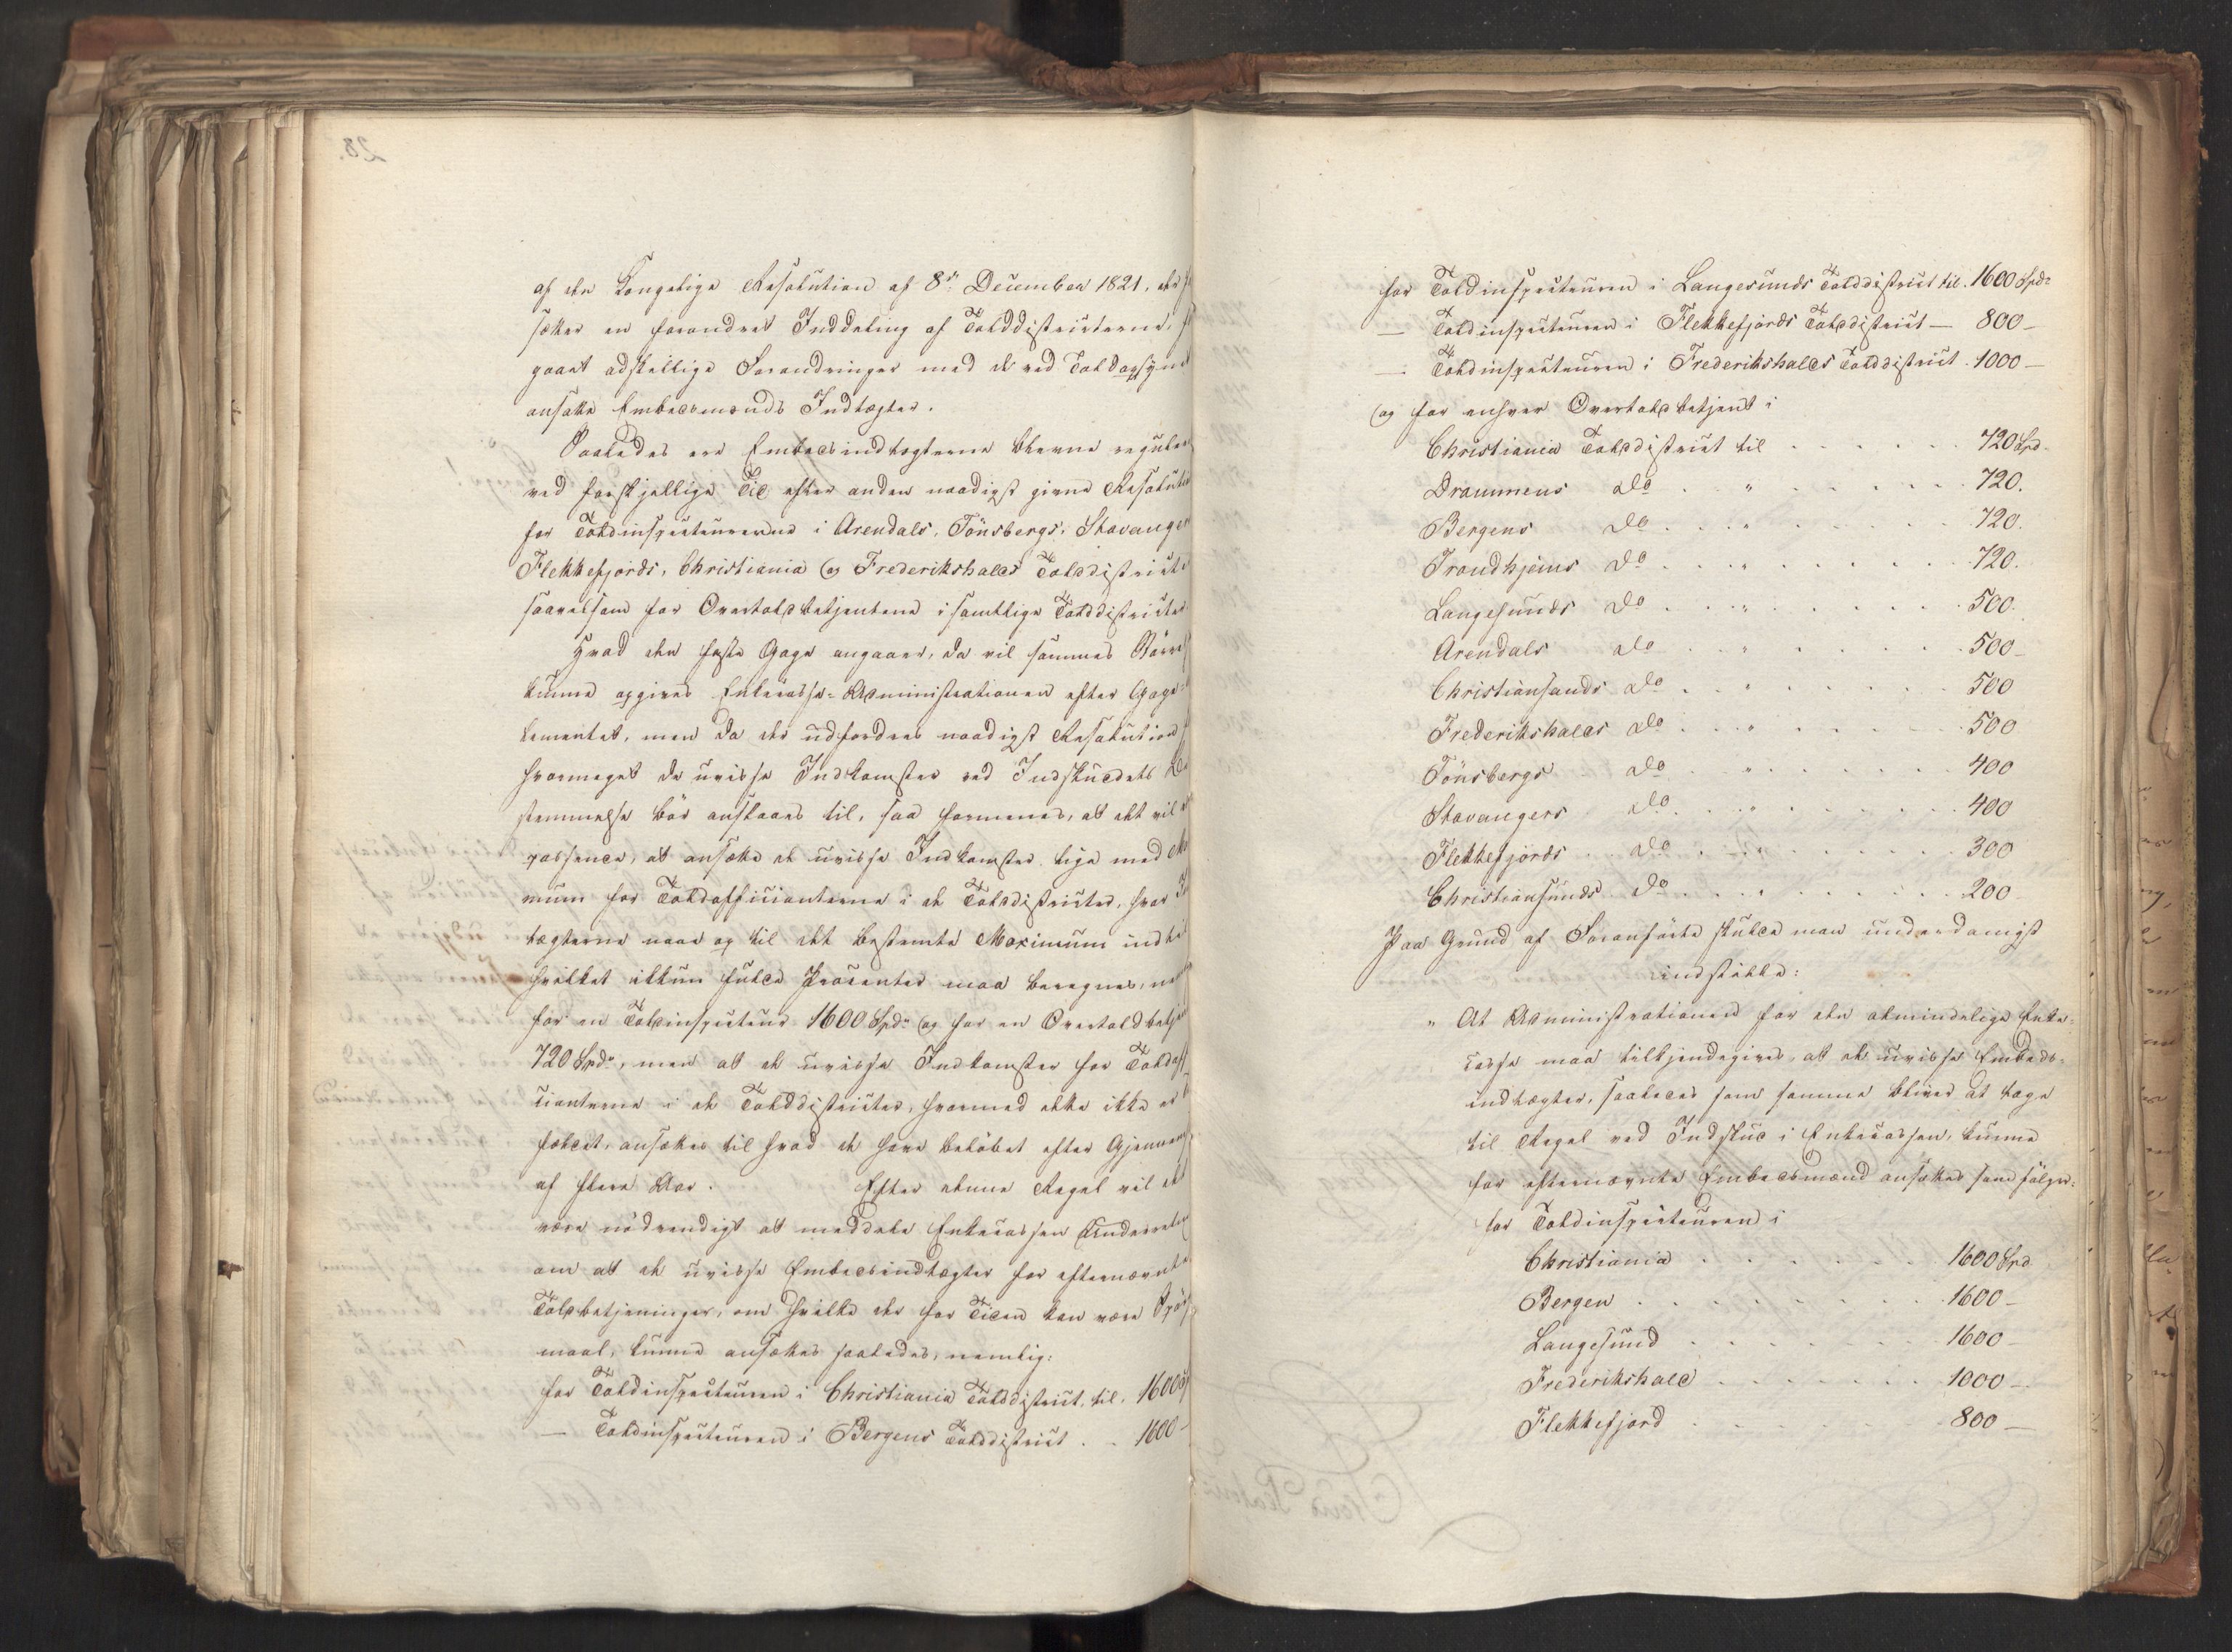 af den Kongelige Resolution af 8de December 1821, der
sætter en forandret Inddeling af Tolddistricterne,
gaaet adskellige Forandringer med de ved Toldopsynet
ansatte Embedsmænds Indtægter.
Saaledes ere Embedsindtægterne blevne reguler
ved forskjellige Tid efter anden naadigst givne Resolution
for Toldinspecteurerne i Arendals, Tönsbergs, Stavanger
Flekkefjords, Christiania og Frederikshalds Tolddistricte
saavelsom for Overtoldbetjentene i samtlige Tolddistricter
Hvad den faste Gage angaaer, da vil sammes Störrels
kunne opgives Enkecasse-Administrationen efter Gage-
lementet, men da der udfordres naadigst Resolution
hvormeget de uvisse Indkomster ved Indskudets Be
stemmelse bör anslaaes til, saa formenes, at det vil
passende, at ansætte de uvisse Indkomster lige med Ma
mum for Toldofficianterne i de Tolddistricter, hvor In
tægterne naae op til det bestemte Maximum indtil
hvilket allene fulde Procenter maa beregnes,
for en Toldinspecteur 1600 Spd. og for en Overtoldbetjent
720 Spd., men at de uvisse Indkomster for Toldoffi
cianterne i de Tolddistricter, hvormed dette ikke er
fældet, ansættes til hvad de have belöbet efter Gjennems
af flere Aar. Efter denne Regel vil det
være nödvendigt at meddele Enkecassen Underretn
om at de uvisse Embedsindtægter for efternævnte
Toldbetjeninger, om hvilke der for Tiden kan være Spörs
maal, kunne ansættes saaledes, nemlig:
for Toldinspecteuren i Christiania Tolddistrict, til, 1600 S
— Toldinspecteuren i Bergens Tolddistrict . . 1600 -
for Toldinspecteuren i Langesunds Tolddistrict til. 1600 Spd.
— Toldinspecteuren i Flekkefjords Tolddistrict — 800 —
— Toldinspecteuren i Frederikshalds Tolddistrict . 1000 —
og for enhver Overtoldbetjent i
Christiania Tolddistrict til . . . . . . 720 Spd.
Drammens do . . " . . . . . . 720.
Bergens do . . " . . . . . . 720.
Trondhjems do . . " . . . . . . 720.
Langesunds do . . " . . . . . . 500.
Arendals do . . " . . . . . . 500 -
Christiansands do . . " . . . . . . 500
Frederikshalds do . . " . . . . . . 500
Tönsbergs do . . " . . . . . . 400
Stavangers do . . " . . . . . . 400
Flekkefjords do . . " . . . . . . 300
Christiansunds do . . " . . . . . . 200
Paa Grund af Foranförte skulde man underdanigst
indstille:
" At Administrationen for den almindelige Enke-
casse maa tilkjendegives, at de uvisse Embeds-
indtægter, saaledes som samme bliver at tage
til Regel ved Indskud i Enkecassen, kunne
for efternævnte Embedsmænd ansættes som fölger:
for Toldinspecteuren i
Christiania . . . . . . 1600 Spd
Bergen . . . . . . . 1600 -
Langesund . . . . . . 1600 -
Frederikshald . . . . . . 1000 —
Flekkefjord . . . . . . 800 —